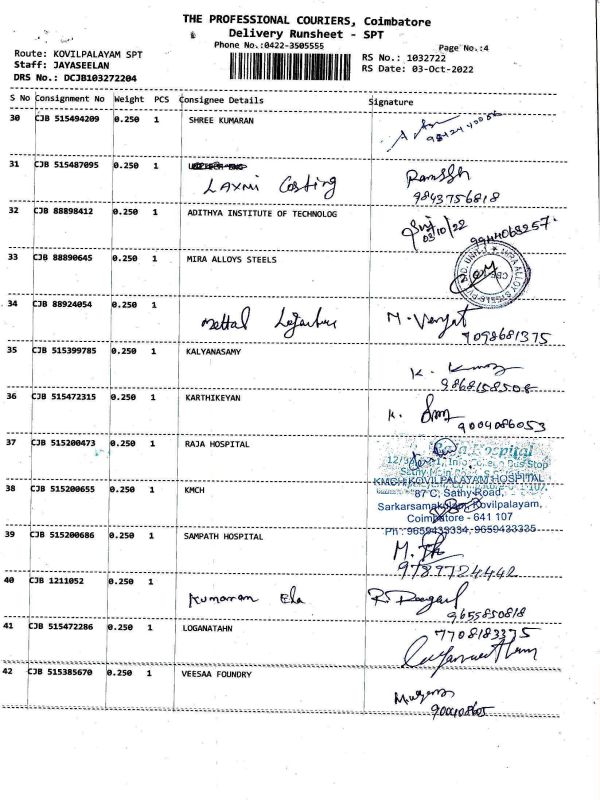 THE PROFESSIONAL COURIERS, Coimbatore
Delivery Runsheet - SPT
Phone No.:0422-3505555
Page No.:4
Route: KOVILPALAYAM SPT
Staff: JAYASEELAN
DRS No.: DCJB103272204
RS No.: 1032722
RS Date: 03-Oct-2022
S No Consignment No Weight PCS Consignee Details Signature
30 CJB 515494209 0.250 1 SHREE KUMARAN
31 CJB 515487095 0.250 1
LAXMI Casting
9843756818
32 CJB 88898412 0.250 1 ADITHYA INSTITUTE OF TECHNOLOG
03/10/22 9944068257
33 CJB 88890645 0.250 1 MIRA ALLOYS STEELS
34 CJB 88924054 0.250 1
Mettal
M. Vengat
7098681375
35 CJB 515399785 0.250 1 KALYANASAMY
K.
9868158508
36 CJB 515472315 0.250 1 KARTHIKEYAN
K.
9004086053
37 CJB 515200473 0.250 1 RAJA HOSPITAL
Raja Hospital
Bus Stop
38 CJB 515200655 0.250 1 KMCH
KMCH KOVILPALAYAM HOSPITAL
87 C, Sathy Road,
Sarkarsamakulam, Kovilpalayam,
Coimbatore - 641 107
Ph : 9659439334, 9659433335
39 CJB 515200686 0.250 1 SAMPATH HOSPITAL
9789724442
40 CJB 1211052 0.250 1
Kumaran Ela
9655850818
41 CJB 515472286 0.250 1 LOGANATAHN
7708183375
42 CJB 515385670 0.250 1 VEESAA FOUNDRY